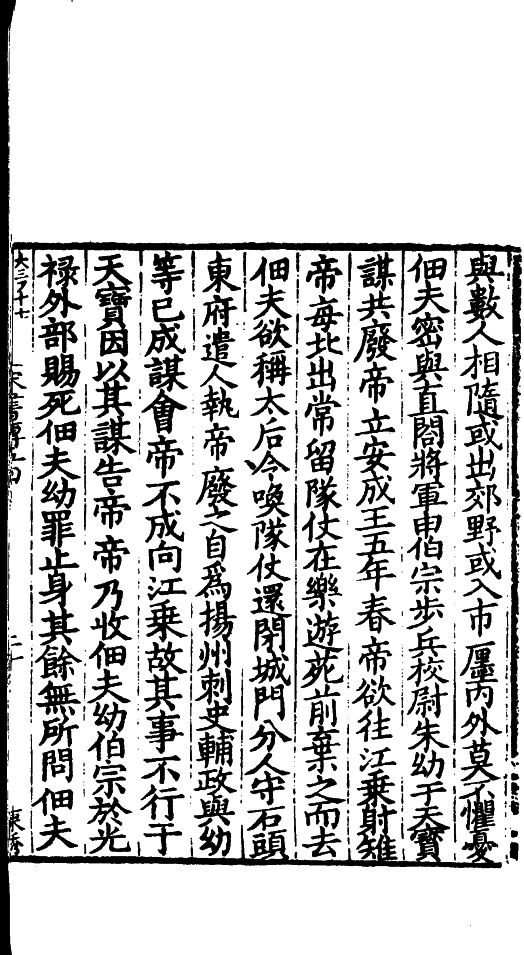 與數人相隨或出郊野或入市廛內外莫不懼憂
佃夫密與直閤將軍申伯宗步兵校尉朱幼于天寶
謀共廢帝立安成王五年春帝欲往江乗射雉
帝每北出常留隊仗在樂遊苑前棄之而去
佃夫欲稱太后令喚隊仗還閉城門分人守石頭
東府遣人執帝廢之自爲揚州刺史輔政與幼
等已成謀會帝不成向江乗故其事不行于
天寶因以其謀告帝帝乃收佃夫幼伯宗於光
禄外部賜死佃夫幼罪止身其餘無所問佃夫